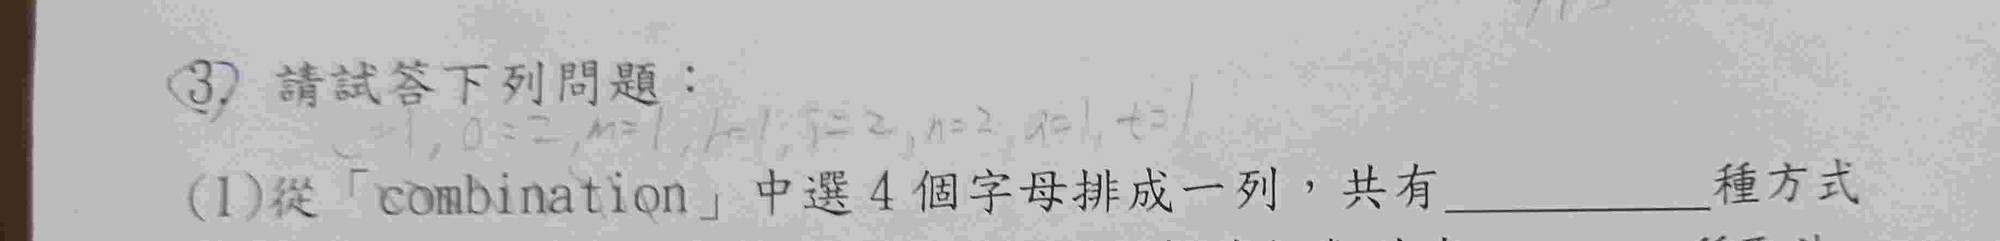 ③ 請試答下列問題：
c=1, o=2, m=1, b=1, i=2, n=2, a=1, t=1
(1)從「combination」中選 4 個字母排成一列，共有__________種方式